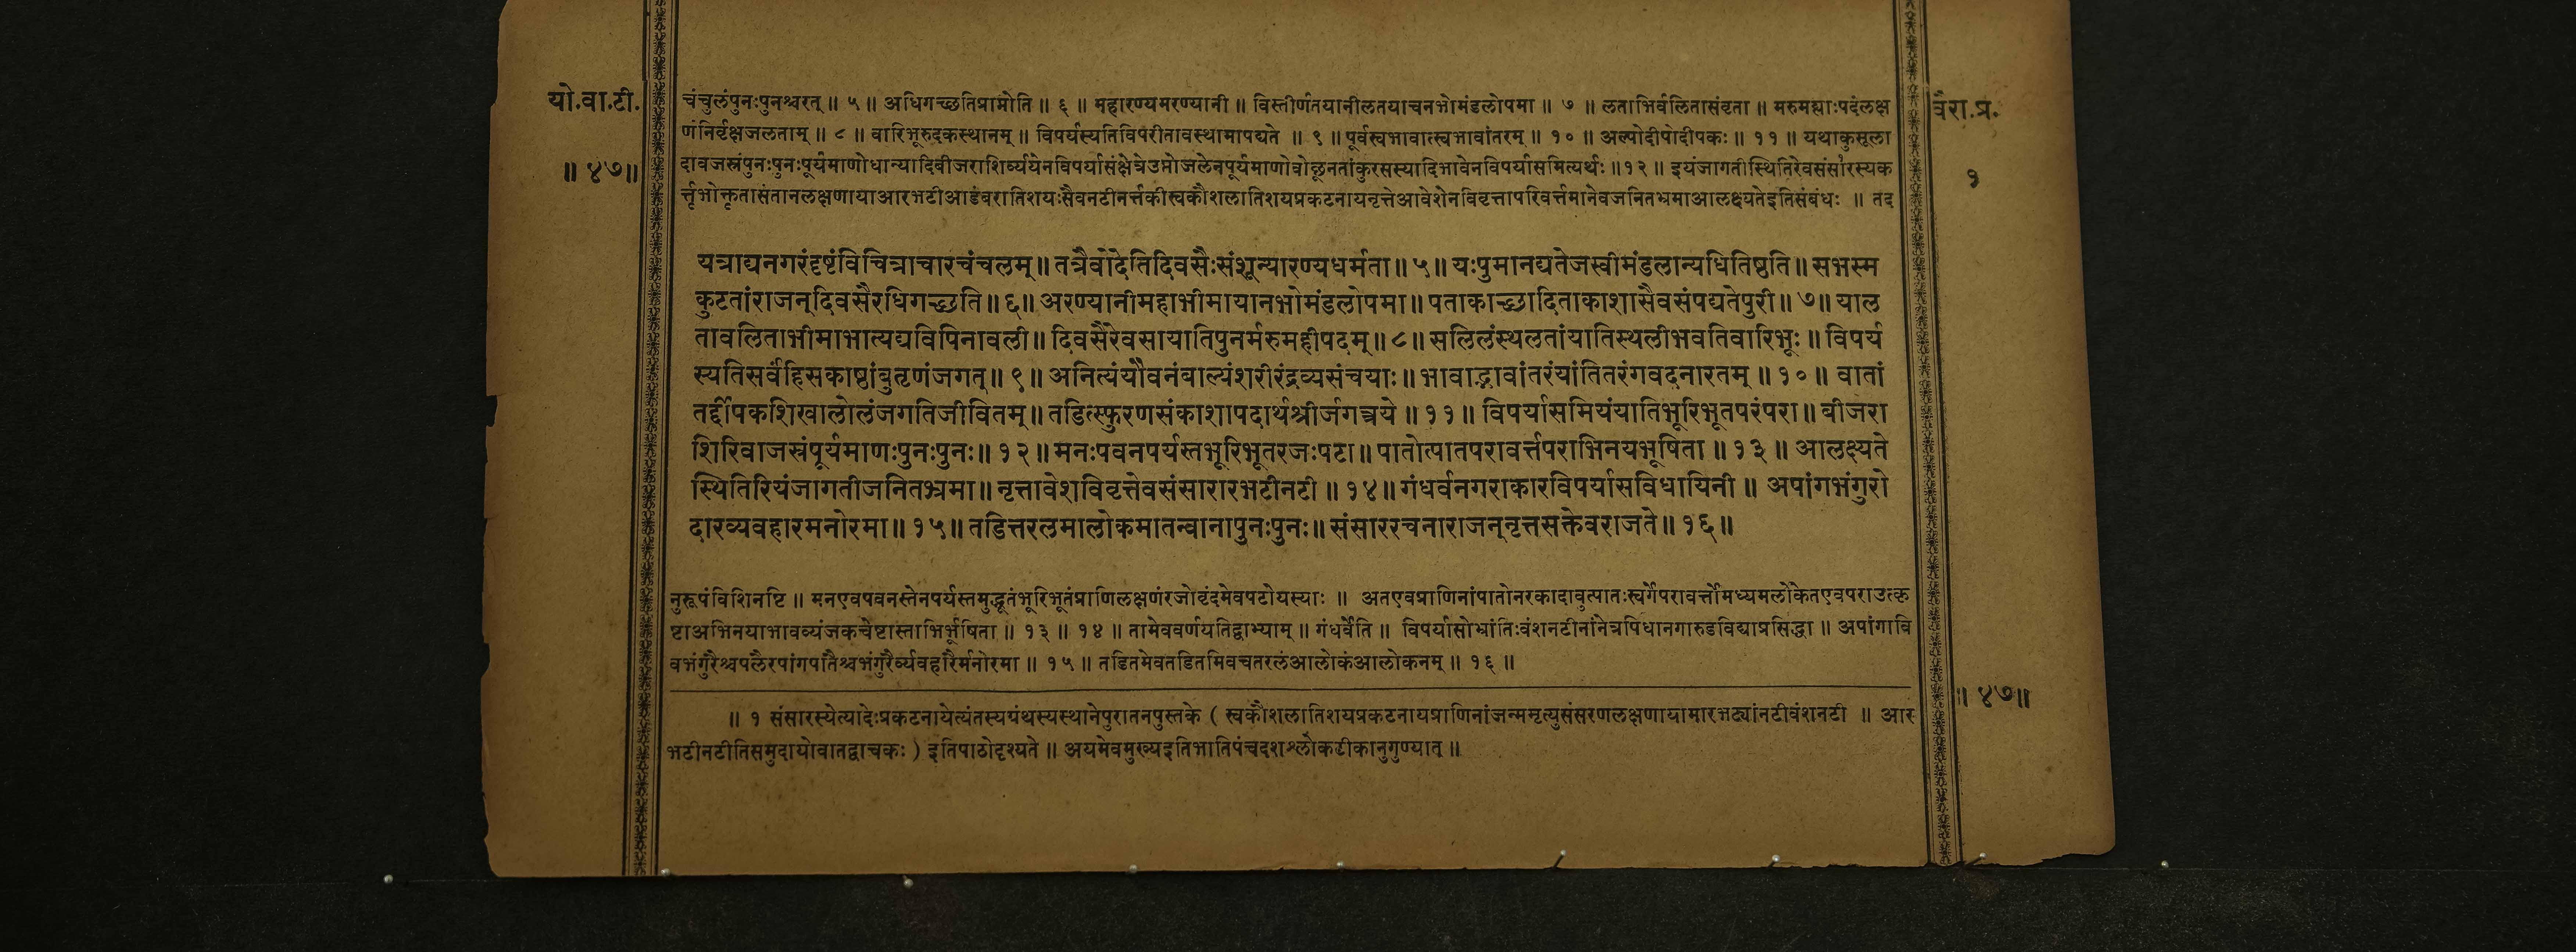 यो.वा.टी.
॥ ४७॥
चंचुलंपुनःपुनश्चरत् ॥ ५ ॥ अधिगच्छतिप्राप्नोति ॥ ६ ॥ महारण्यमरण्यानी ॥ विस्तीर्णतयानीलतयाचनभोमंडलोपमा ॥ ७ ॥ लताभिर्वलितासंवृता ॥ मरुमह्याःपदंलक्ष
णंनिर्वृक्षजलताम् ॥ ८ ॥ वारिभूरुदकस्थानम् ॥ विपर्यस्यतिविपरीतावस्थामापद्यते ॥ ९ ॥ पूर्वस्वभावात्स्वभावांतरम् ॥ १० ॥ अल्पोदीपोदीपकः ॥ ११ ॥ यथाकुसूला
दावजस्रंपुनःपुनःपूर्यमाणोधान्यादिबीजराशिर्व्ययेनविपर्यासंक्षेत्रेउप्तोजलेनपूर्यमाणोवोच्छूनतांकुरसस्यादिभावेनविपर्यासमित्यर्थः ॥१२ ॥ इयंजागतीस्थितिरेवसंसारस्यक
र्त्तृभोक्तृतासंतानलक्षणायाआरभटीआडंबरातिशयःसैवनटीनर्त्तकीस्वकौशलातिशयप्रकटनायनृत्तेआवेशेनविवृत्तापरिवर्त्तमानेवजनितभ्रमाआलक्ष्यतेइतिसंबंधः ॥ तद
यत्राद्यनगरंदृष्टंविचित्राचारचंचलम्॥ तत्रैवोदेतिदिवसैःसंशून्यारण्यधर्मता॥ ५॥ यःपुमानद्यतेजस्वीमंडलान्यधितिष्ठति॥ सभस्म
कुटतांराजन्दिवसैरधिगच्छति॥ ६॥ अरण्यानीमहाभीमायानभोमंडलोपमा॥ पताकाच्छादिताकाशासैवसंपद्यतेपुरी॥ ७॥ याल
तावलिताभीमाभात्यद्यविपिनावली॥ दिवसैरेवसायातिपुनर्मरुमहीपदम्॥ ८॥ सलिलंस्थलतांयातिस्थलीभवतिवारिभूः॥ विपर्य
स्यतिसर्वंहिसकाष्ठांबुतृणंजगत्॥ ९॥ अनित्यंयौवनंबाल्यंशरीरंद्रव्यसंचयाः॥ भावाद्भावांतरंयांतितरंगवदनारतम्॥ १०॥ वातां
तर्द्दीपकशिखालोलंजगतिजीवितम्॥ तडित्स्फुरणसंकाशापदार्थश्रीर्जगत्रये॥ ११॥ विपर्यासमियंयातिभूरिभूतपरंपरा॥ बीजरा
शिरिवाजस्रंपूर्यमाणःपुनःपुनः॥ १२॥ मनःपवनपर्यस्तभूरिभूतरजःपटा॥ पातोत्पातपरावर्त्तपराभिनयभूषिता॥ १३॥ आलक्ष्यते
स्थितिरियंजागतीजनितभ्रमा॥ नृत्तावेशविवृत्तेवसंसारारभटीनटी॥ १४॥ गंधर्वनगराकारविपर्यासविधायिनी॥ अपांगभंगुरो
दारव्यवहारमनोरमा॥ १५॥ तडित्तरलमालोकमातन्वानापुनःपुनः॥ संसाररचनाराजन्नृत्तसक्तेवराजते॥ १६॥
नुरूपंविशिनष्टि ॥ मनएवपवनस्तेनपर्यस्तमुद्धूतंभूरिभूतंप्राणिलक्षणंरजोवृंदमेवपटोयस्याः ॥ अतएवप्राणिनांपातोनरकादावुत्पातःस्वर्गेपरावर्त्तोमध्यमलोकेतएवपराउत्कृ
ष्टाअभिनयाभावव्यंजकचेष्टास्ताभिर्भूषिता ॥ १३ ॥ १४ ॥ तामेववर्णयतिद्वाभ्याम् ॥ गंधर्वेति ॥ विपर्यासोभ्रांतिःवंशनटीनांनेत्रपिधानगारुडविद्याप्रसिद्धा ॥ अपांगावि
वभंगुरैश्चपलैरपांगपातैश्चभंगुरैर्व्यवहारैर्मनोरमा ॥ १५ ॥ तडितमेवतडितमिवचतरलंआलोकंआलोकनम् ॥ १६ ॥
॥ १ संसारस्येत्यादेःप्रकटनायेत्यंतस्यग्रंथस्यस्थानेपुरातनपुस्तके ( स्वकौशलातिशयप्रकटनायप्राणिनांजन्ममृत्युसंसरणलक्षणायामारभट्यांनटीवंशनटी ॥ आर
भटीनटीतिसमुदायोवातद्वाचकः ) इतिपाठोदृश्यते ॥ अयमेवमुख्यइतिभातिपंचदशश्लोकटीकानुगुण्यात् ॥
वैरा.प्र.
१
॥ ४७॥